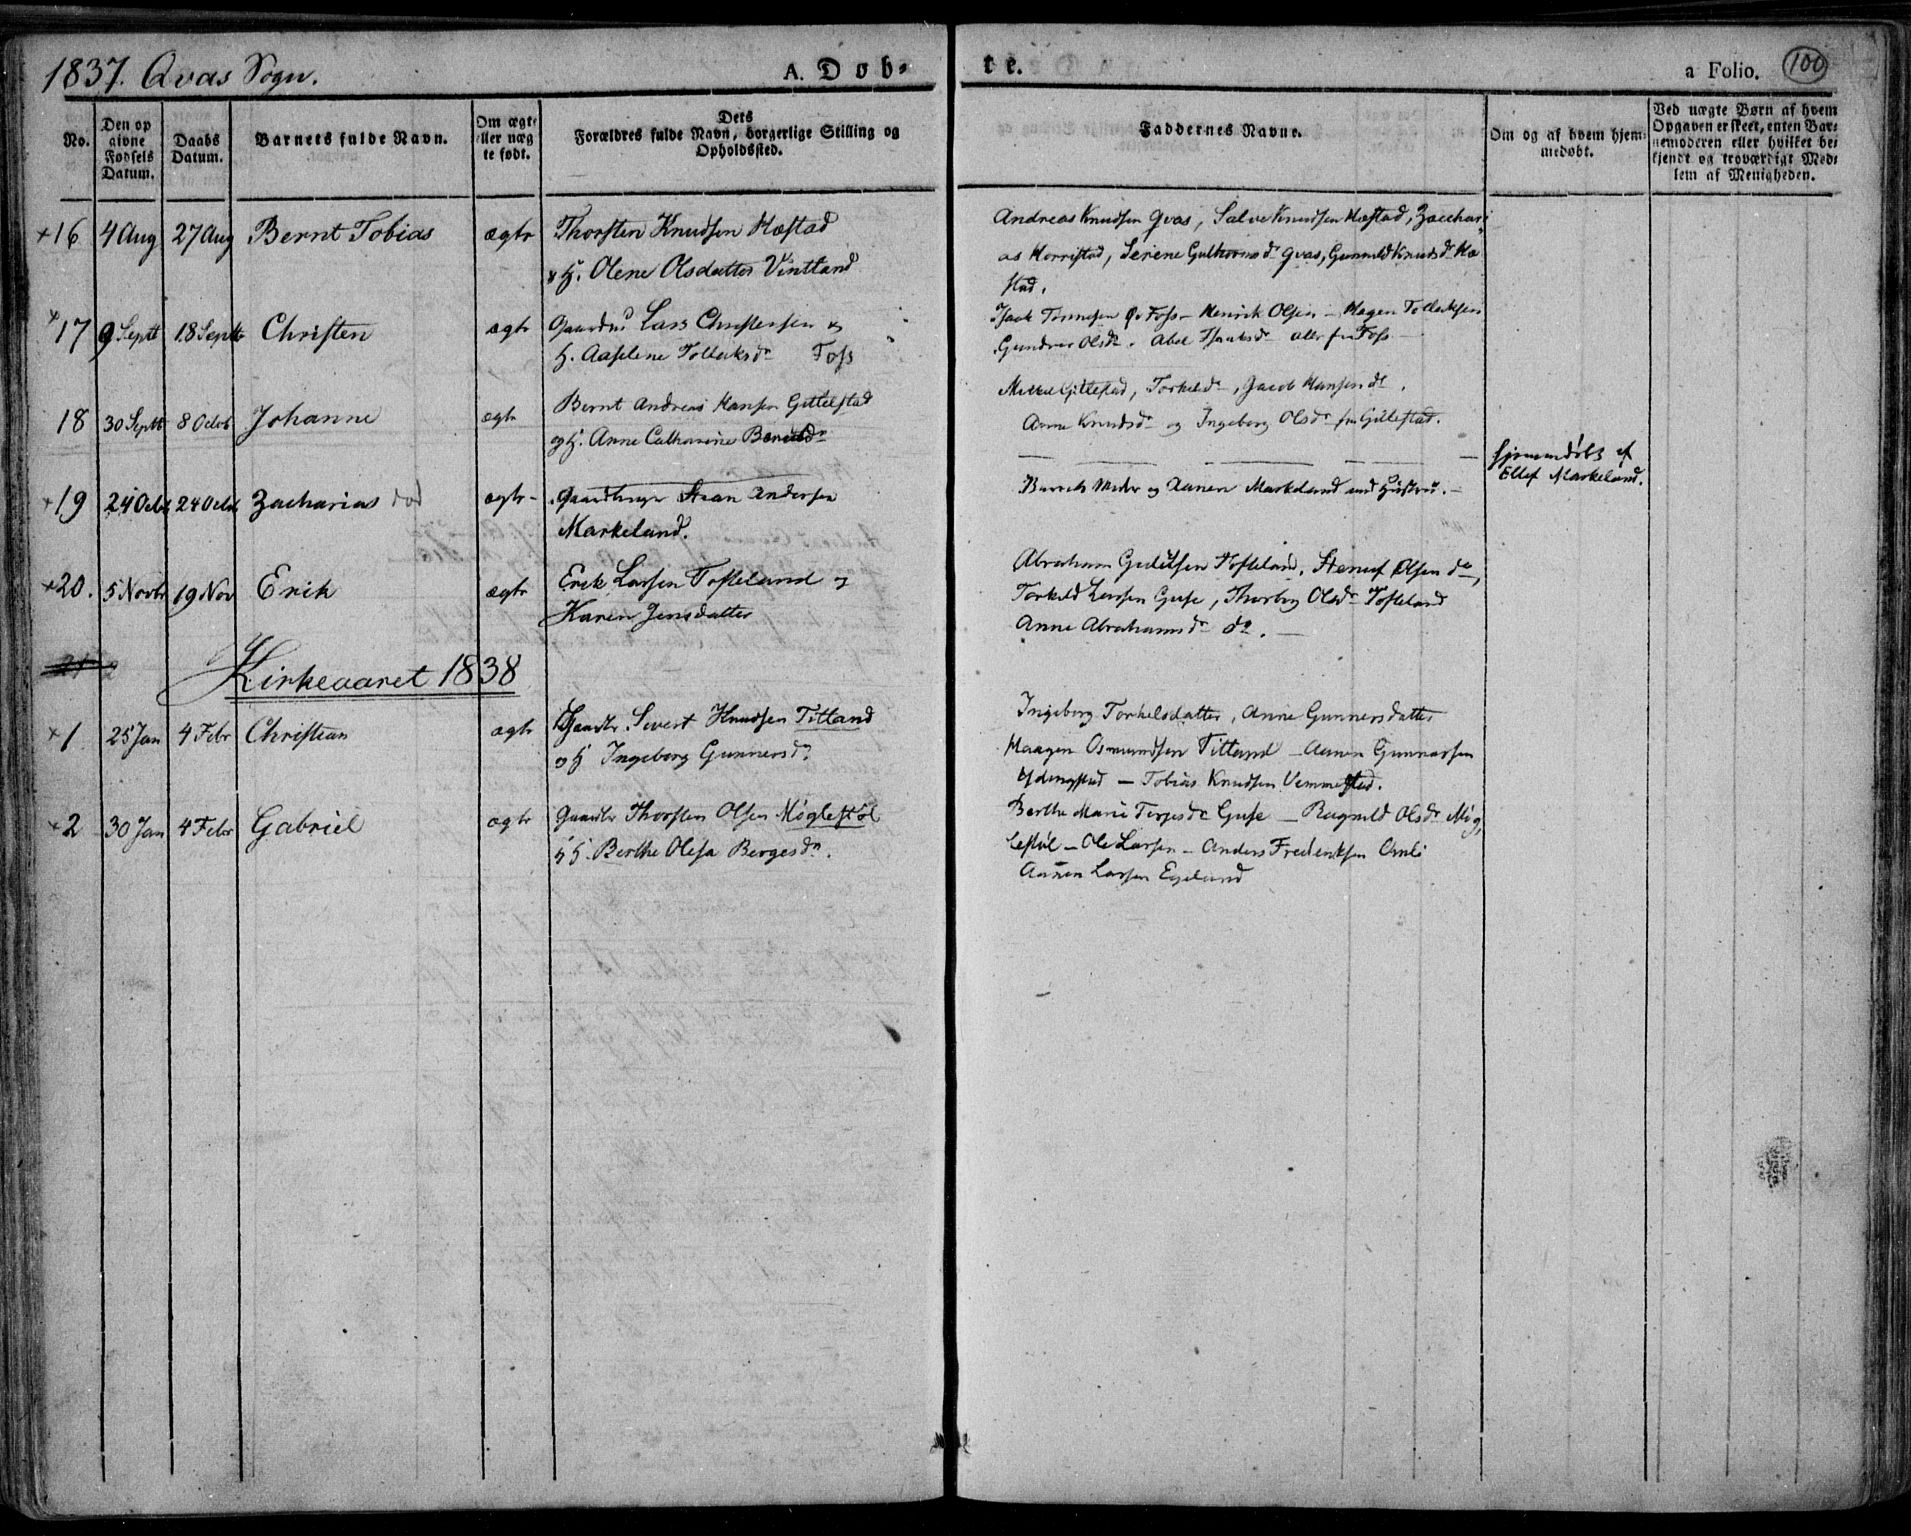 1837. Qvas Sogn.
A. Döb-
te.
a Folio. 100
No.
Den op
givne
Fødsels
Datum.
Daabs
Datum.
Barnets fulde Navn.
Om ægte
eller uæg
te født.
Dets
Forældres fulde Navn, borgerlige Stilling og
Opholdssted.
Faddernes Navne.
Om og af hvem hjem-
medøbt.
Ved uægte Børn af hvem
Opgaven er skeet, enten Bar-
nemoderen eller hvilket be-
kjendt og troværdigt Med-
lem af Menigheden.
+16 4 Aug 27 Aug Bernt Tobias ægte Thorsten Knudsen Hæstad
H. Olene Olsdatter Vintland
Andreas Knudsen Qvas, Salve Knudsen Hæstad, Zacchari
as Herristad, Serene Guthorms d. Qvas, Gunnild Knuds dr Hæ
stad.
+17 9 Septt 18 Septt Christen ægte Gaardm Lars Christensen og
H. Aaselene Tollaksdr Foss
Isack Tønnesen Foss - Henrik Olsen - Hagen Tollaksen
Olsdr. Abel Isaksdr alle fra Foss
18 30 Septt 8 Octob Johanne ægte Bernt Andreas Hansen Gitlestad
og H. Anne Catharine
Gitlestad, Jacob Hansen do.
Anne Knudsdr og Ingeborg Olsdr fra Gitlestad.
+19 24 Octb 24 Octb Zacharias død ægte Staan Andersen
Markeland.
og Aanen Markeland med Hustru.
hjemmedøbt af
Ellef Markeland.
+20. 5 Novbr 19 Nov Erik ægte Erik Larsen Tofteland og
Karen Jensdatter
Abraham Tofteland, Olsen do,
Torkeld Larsen Guse, Thorborg Olsdr Tofteland
Anne Abrahamsdr do.
21
Kirkeaaret 1838
+1 25 Jan 4 Febr Christian ægte Gaardbr. Sivert Knudsen Titland
og H Ingeborg Gunnersdr.
Ingeborg Torkelsdatter, Anne Gunnersdatter
Haagen Osmundsen Titland - Aanen Gunnarsen
- Tobias Knudsen Vemmestad.
+2 30 Jan 4 Febr Gabriel ægte Gaardbr Thorsten Olsen Møglestøl
H. Berthe Olesa Bergesdr.
Berthe Marie Terjesdr Guse - Ragnild Olsdr Møg
lestøl - Ole Larsen - Anders Fredriksen
Aanen Larsen Egeland